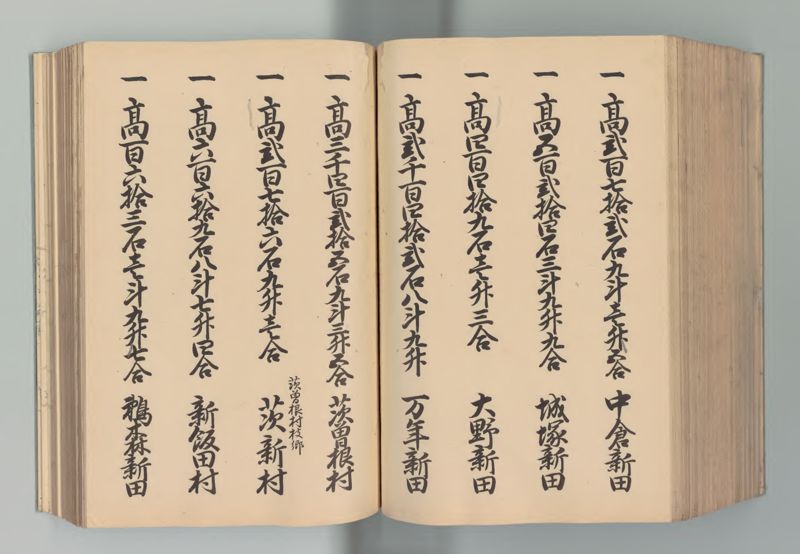 一 高弐百七拾弐石九斗壱升五合 中倉新田
一 高五百弐拾四石三斗九升九合 城塚新田
一 高四百四拾九石壱升三合 大野新田
一 高弐千百四拾弐石八斗九升 万年新田
一 高三千四百弐拾五石九斗三升五合 茨曽根村
茨曽根村枝郷
一 高弐百七拾六石九升壱合 茨新村
一 高六百六拾九石八斗七升四合 新飯田村
一 高百六拾三石壱斗九升七合 鵜森新田